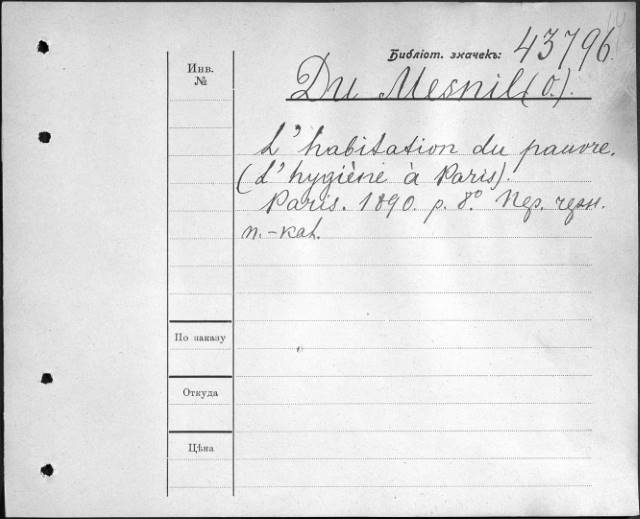 Библіот. значекъ: 43796.
Инв.
№
Du Mesnil (O.).
L'habitation du pauvre.
(L'hygiène à Paris).
Paris. 1890. p. 8° Пер. черн.
п.-каl.
По заказу
Откуда
Цѣна